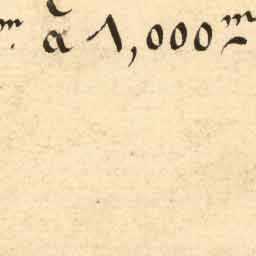 m. à 1,000 m